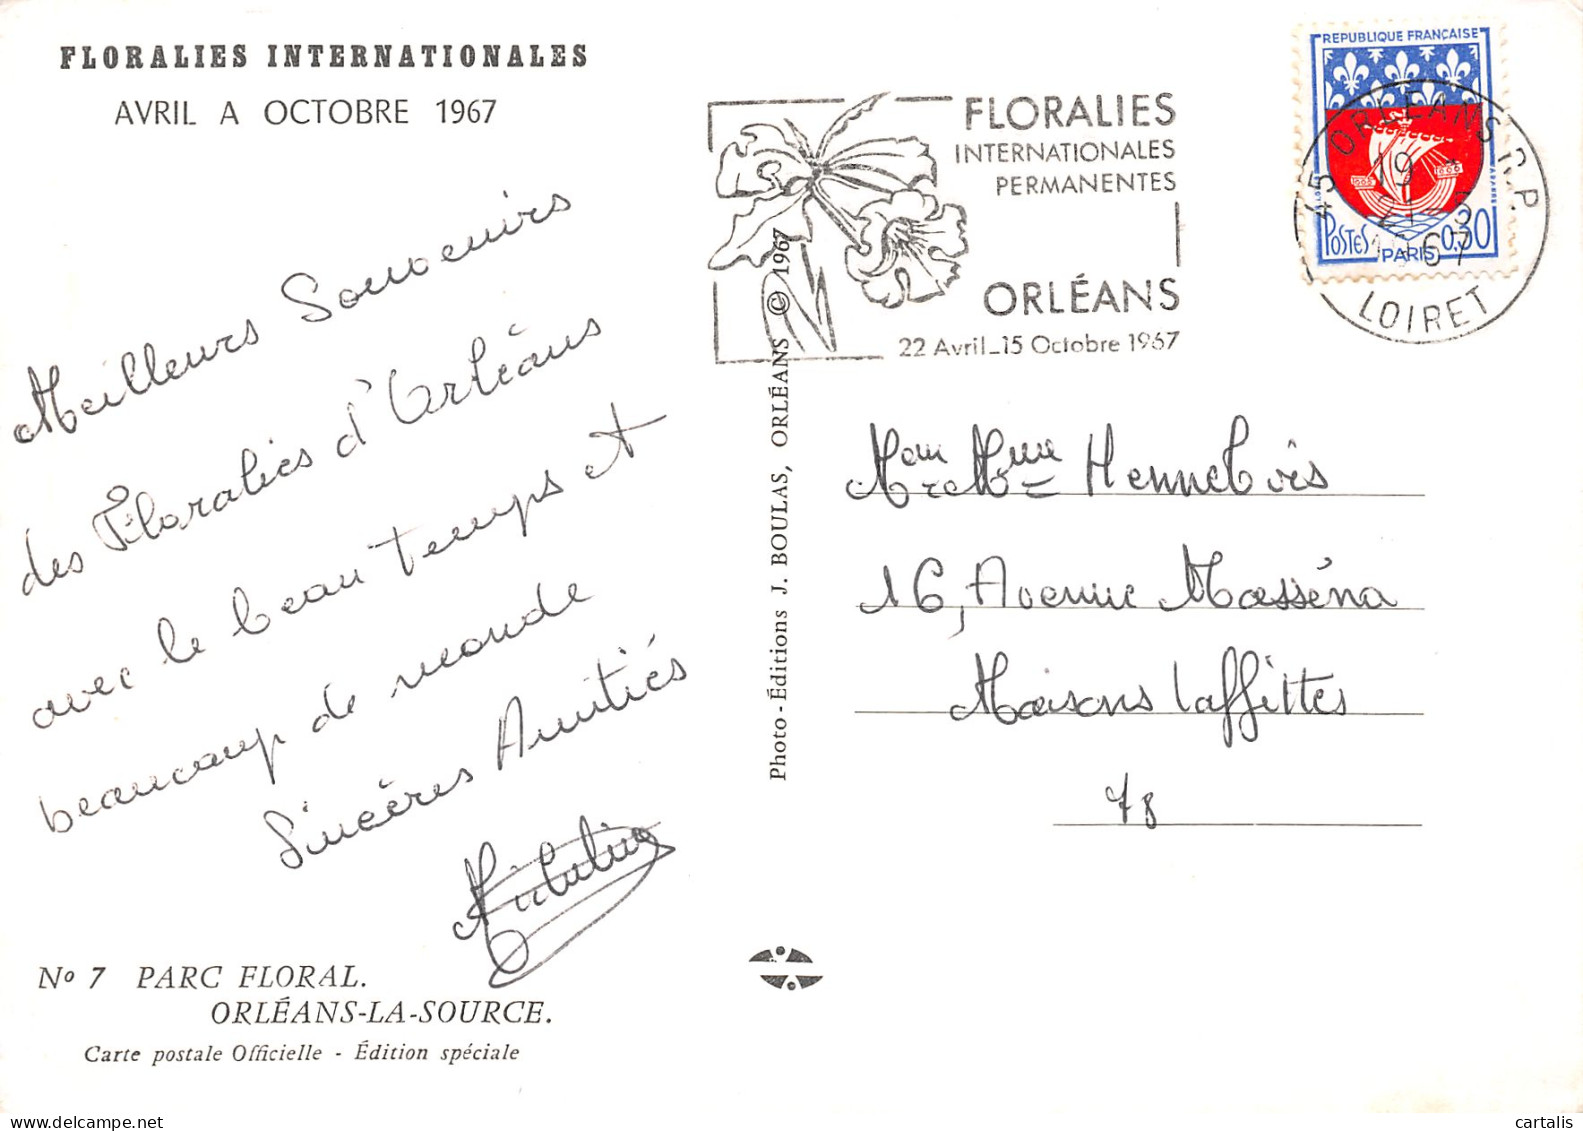 FLORALIES INTERNATIONALES
AVRIL A OCTOBRE 1967
Meilleurs Souvenirs
des Floralies d'Orléans
avec le beau temps et
beaucoup de monde
Sincères Amitiés
No 7 PARC FLORAL.
ORLÉANS-LA-SOURCE.
Carte postale Officielle - Édition spéciale
Photo-Éditions J. BOULAS, ORLÉANS © 1967
FLORALIES
INTERNATIONALES
PERMANENTES
ORLÉANS
22 Avril_15 Octobre 1967
REPUBLIQUE FRANÇAISE
POSTES
0,30
PARIS
45 ORLEANS R.P.
19
1967
LOIRET
Mr et Mme Hennebois
16, Avenue Masséna
Maisons Laffittes
78
delcampe.net
cartalis